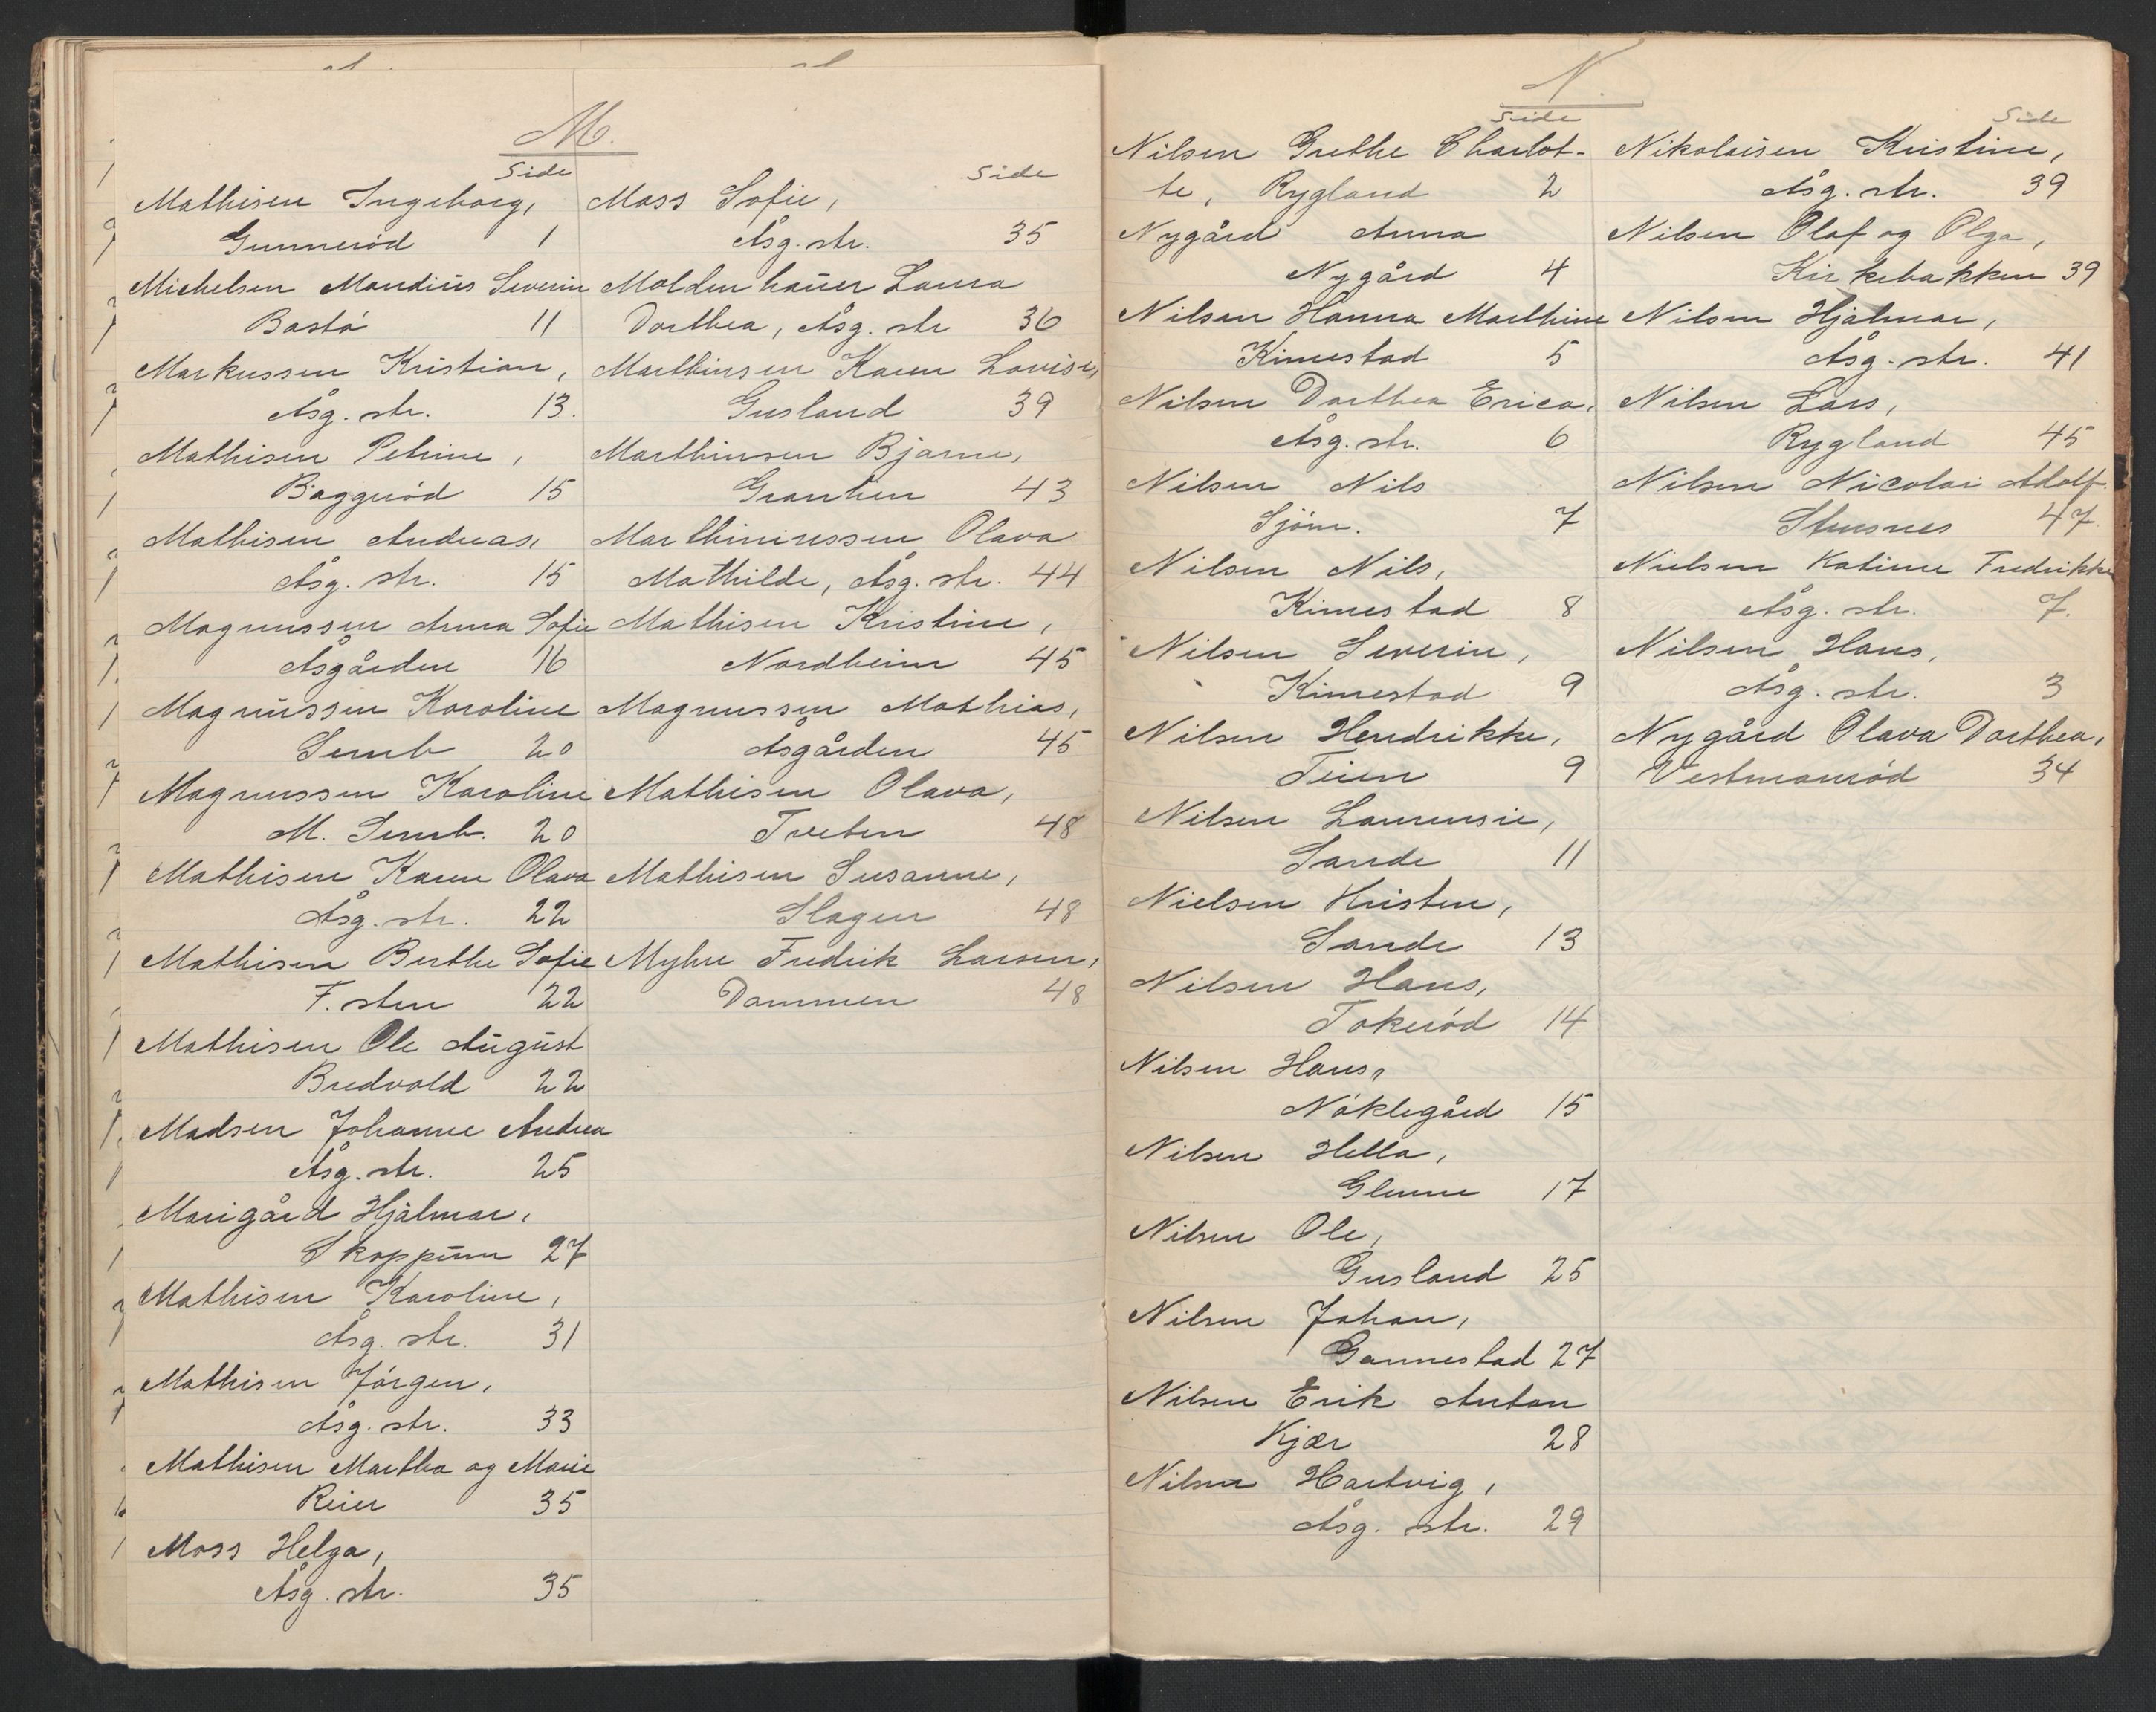 M.
Side
Mathisen Ingeborg,
Gunneröd 1
Michelsen Mandius Severin
Bastö 11
Markussen Kristian,
Åsg. str. 13.
Mathisen Petrine,
Baggeröd 15
Mathisen Andreas,
Åsg. str. 15
Magnussen Anna Sofie
Åsgården 16
Magnussen Karoline
Semb 20
Magnussen Karoline
M. Semb. 20
Mathisen Karen Olava
Åsg. str. 22
Mathisen Berthe Sofie
F. sten 22
Mathisen Ole August
Bredvold 22
Madsen Johanne Andrea
Åsg. str. 25
Marigård Hjalmar,
Skoppum 27
Mathisen Karoline,
Åsg. str. 31
Mathisen Jörgen,
Åsg. str. 33
Mathisen Martha og Marie
Reier 35
Moss Helga,
Åsg. str. 35
Side
Moss Sofie,
Åsg. str. 35
Moldenhauer Laura
Dorthea, Åsg. str 36
Marthinsen Karen Lovise,
Gusland 39
Marthinsen Bjarne,
Granlien 43
Marthiniussen Olava
Mathilde, Åsg. str. 44
Mathisen Kristine,
Nordheim 45
Magnussen Mathias,
Åsgården 45
Mathisen Olava,
Tveten 48
Mathisen Susanne,
Slagen 48
Myhre Fredrik Larsen,
Dammen 48
N.
Side
Nilsen Grethe Charlot-
te, Rygland 2
Nygård Anna
Nygård 4
Nilsen Hanna Marthine
Kimestad 5
Nilsen Dorthea Erica,
Åsg. str. 6
Nilsen Nils
Sjöm. 7
Nilsen Nils,
Kimestad 8
Nilsen Severin,
Kimestad 9
Nilsen Hendrikke,
Teien 9
Nilsen Laurensie,
Sande 11
Nielsen Kristen,
Sande 13
Nilsen Hans,
Tokeröd 14
Nilsen Hans,
Nöklegård 15
Nilsen Hella,
Glenne 17
Nilsen Ole,
Gusland 25
Nilsen Johan,
Gannestad 27
Nilsen Erik Anton
Kjær 28
Nilsen Hartvig,
Åsg. str. 29
Side
Nikolaisen Kristine,
Åsg. str. 39
Nilsen Olaf og Olga,
Kirkebakken 39
Nilsen Hjalmar,
Åsg. str. 41
Nilsen Lars,
Rygland 45
Nilsen Nicolai Adolf.
47.
Nielsen Katinne Fredrikke
Åsg. str. 7.
Nilsen Hans,
Åsg. str. 3
Nygård Olava Dorthea,
Vestmanröd 34